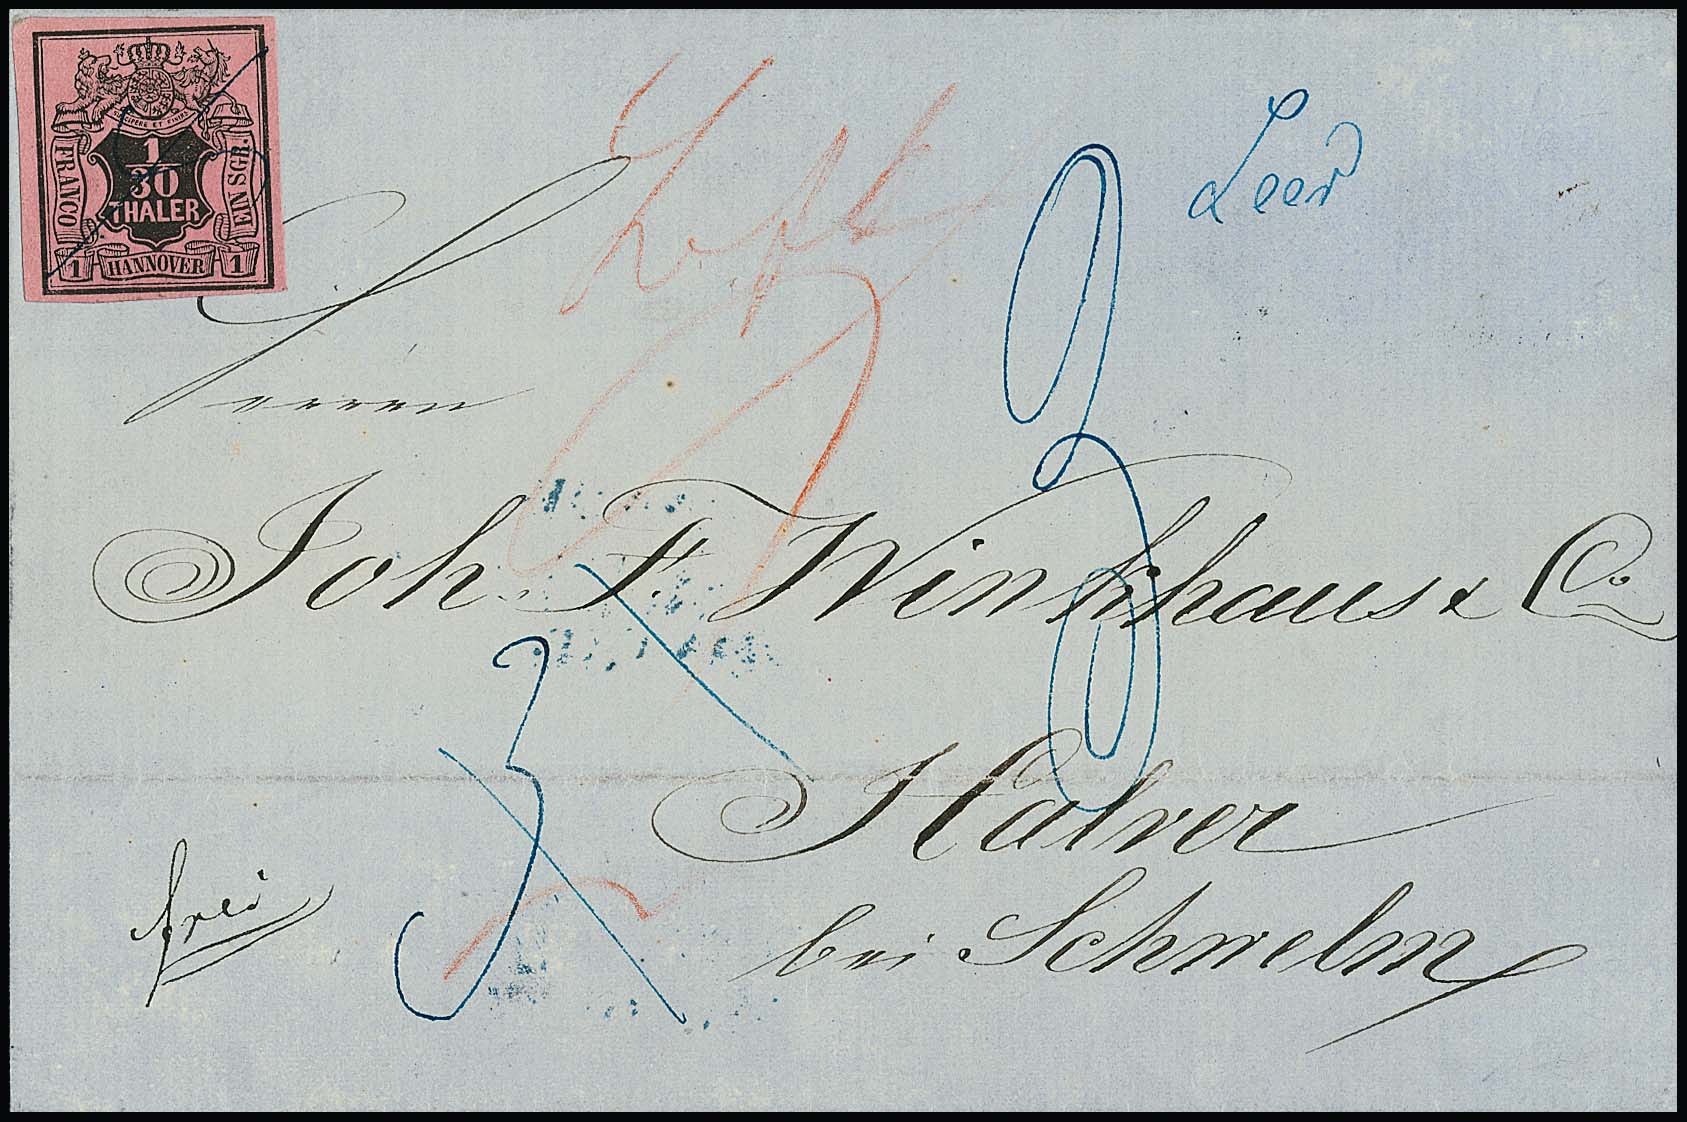 SUSCIPERE ET FINIRE
FRANCO
1
30
THALER
EIN SGR.
1 HANNOVER 1
Leer
Herren
Joh. F. Winkhaus & Co.
3
Halver
frei
bei Schwelm